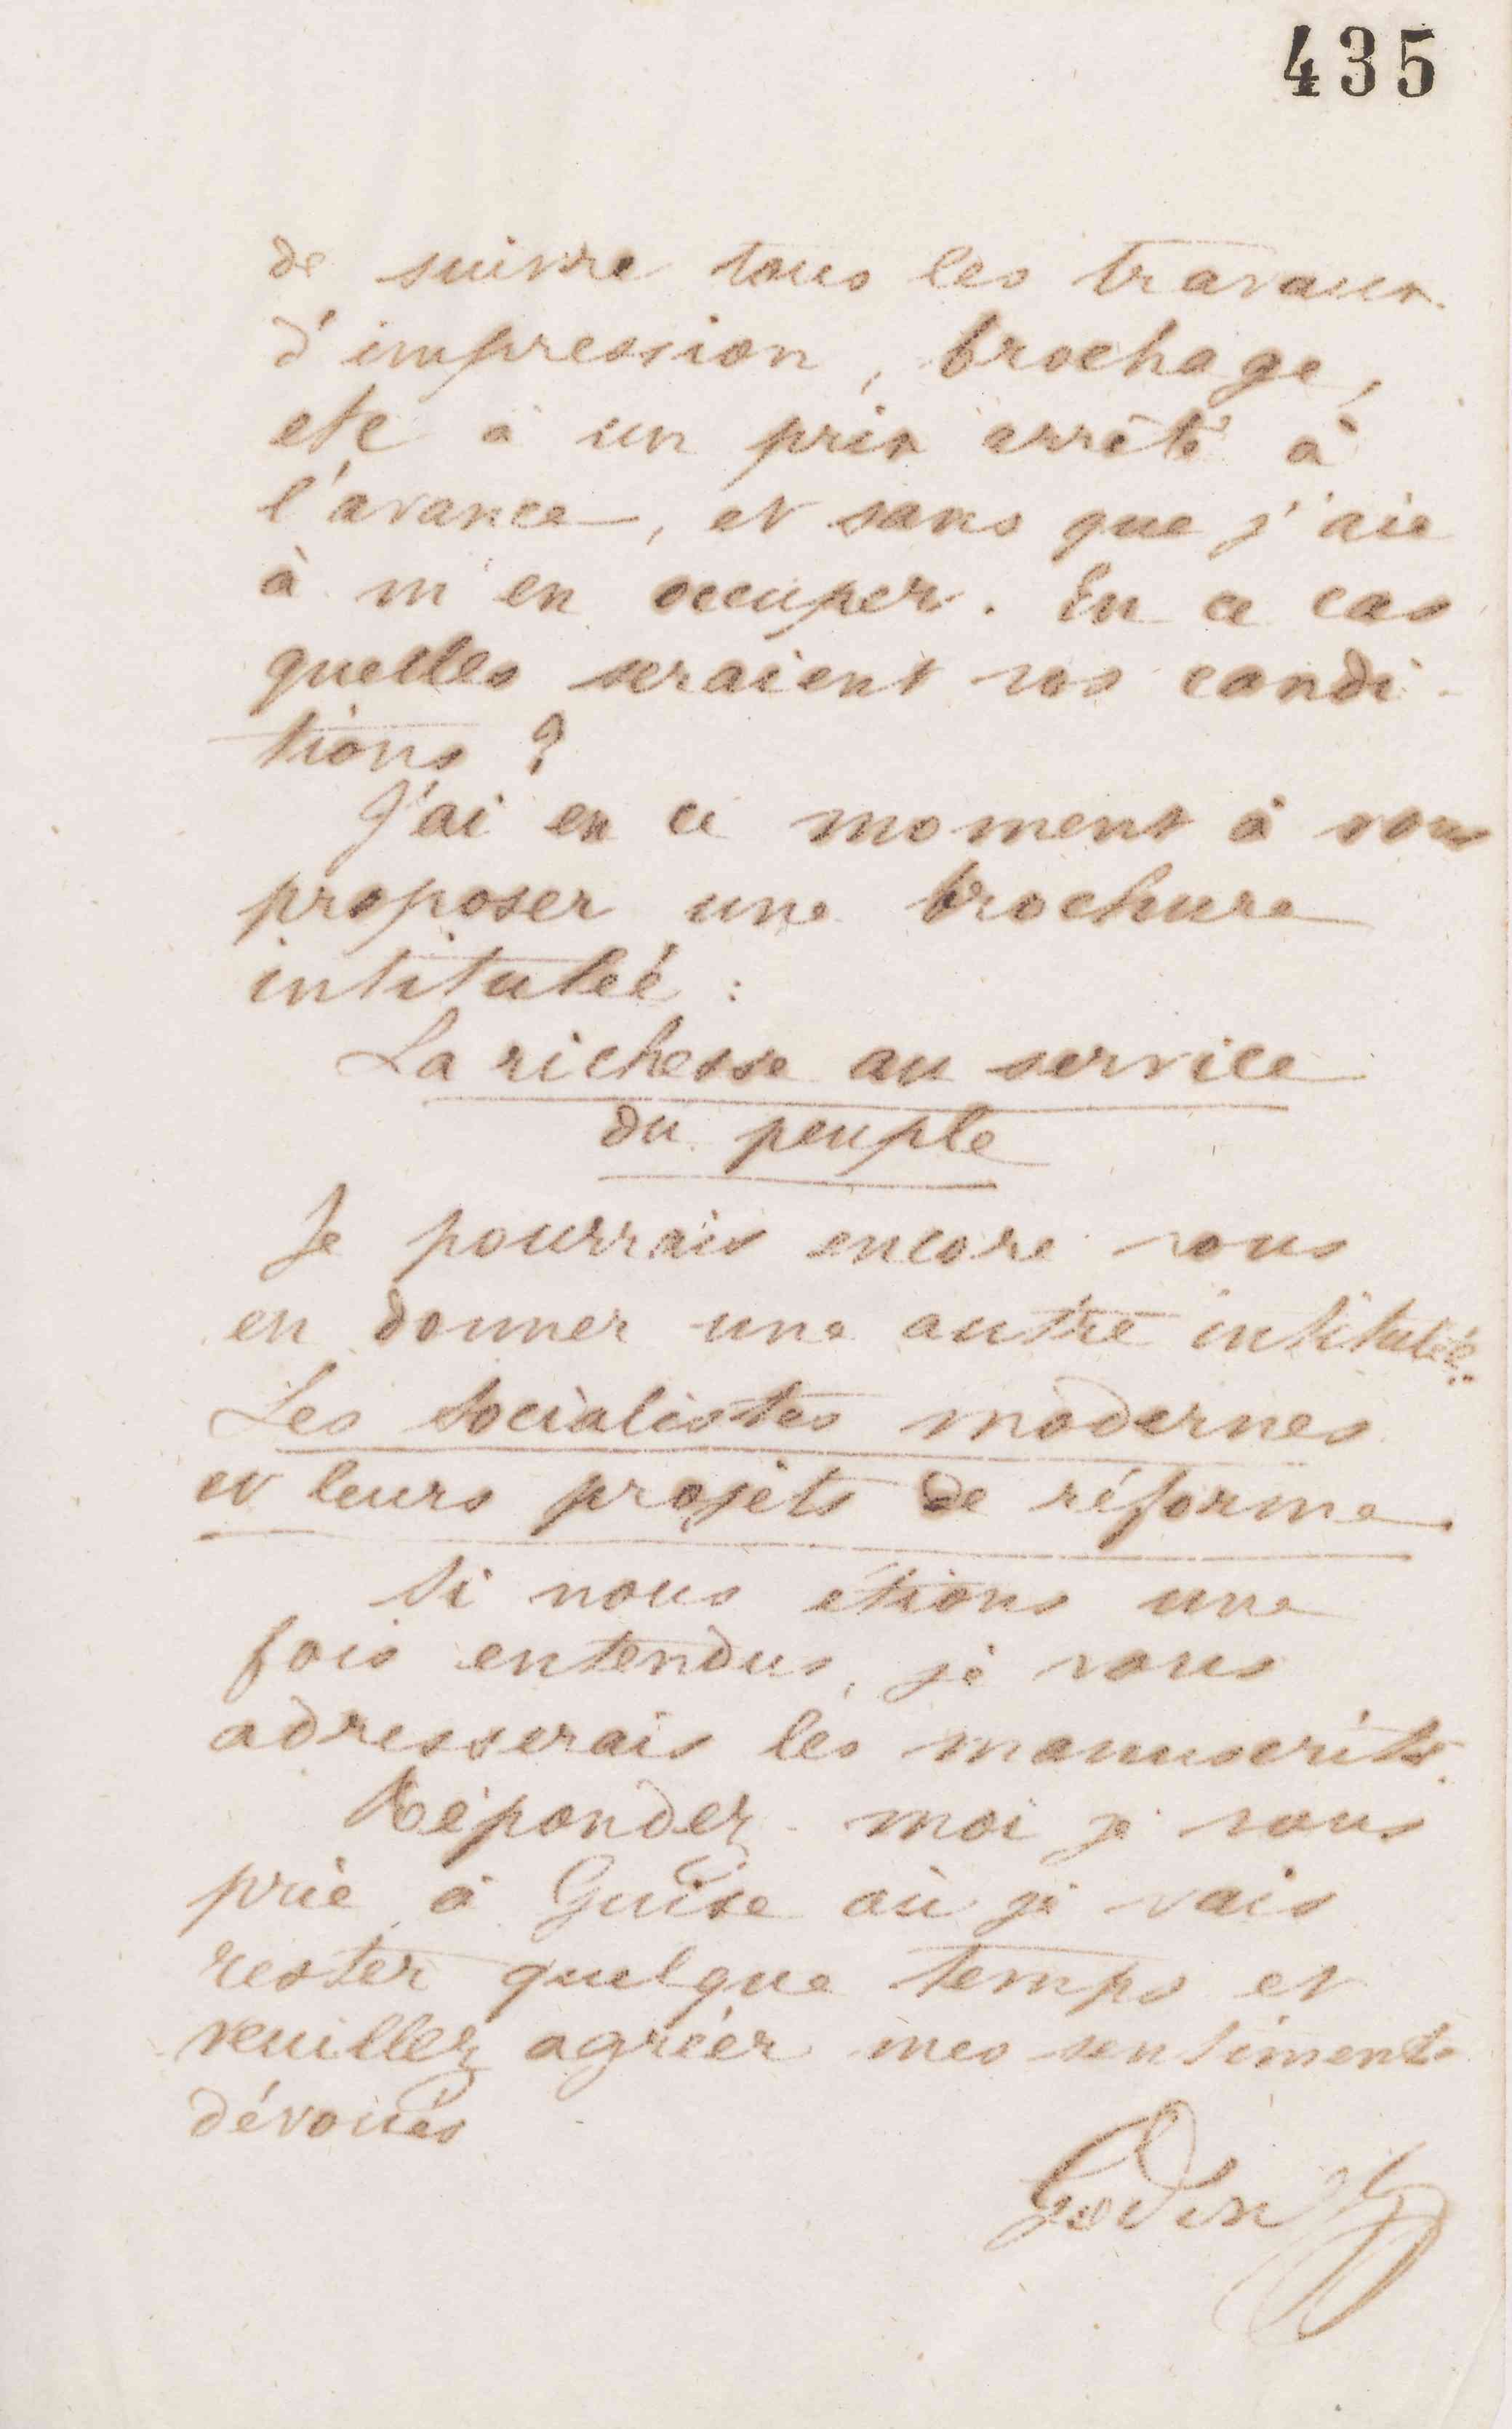 435
de suivre tous les travaux
d'impression, brochage,
etc à un prix arrêté à
l'avance, et sans que j'aie
à m'en occuper. En ce cas
quelles seraient vos condi-
tions ?
J'ai en ce moment à vous
proposer une brochure
intitulée :
La richesse au service
du peuple
Je pourrais encore vous
en donner une autre intitulée :
Les socialistes modernes
et leurs projets de réforme.
Si nous étions une
fois entendus, je vous
adresserais les manuscrits.
Répondez-moi je vous
prie à Guise où je vais
rester quelque temps et
veuillez agréer mes sentiments
dévoués
Godin